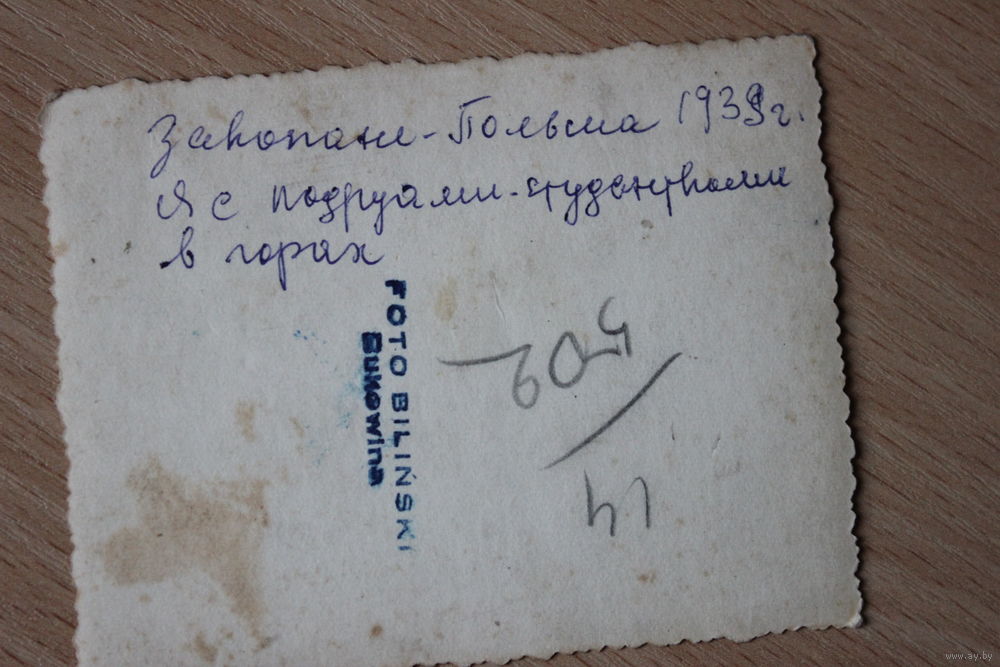 Закопане - Польша 1939 г.
Я с подругами-студентками
в горах
FOTO BILIŃSKI
Bukowina
509
14
www.ay.by